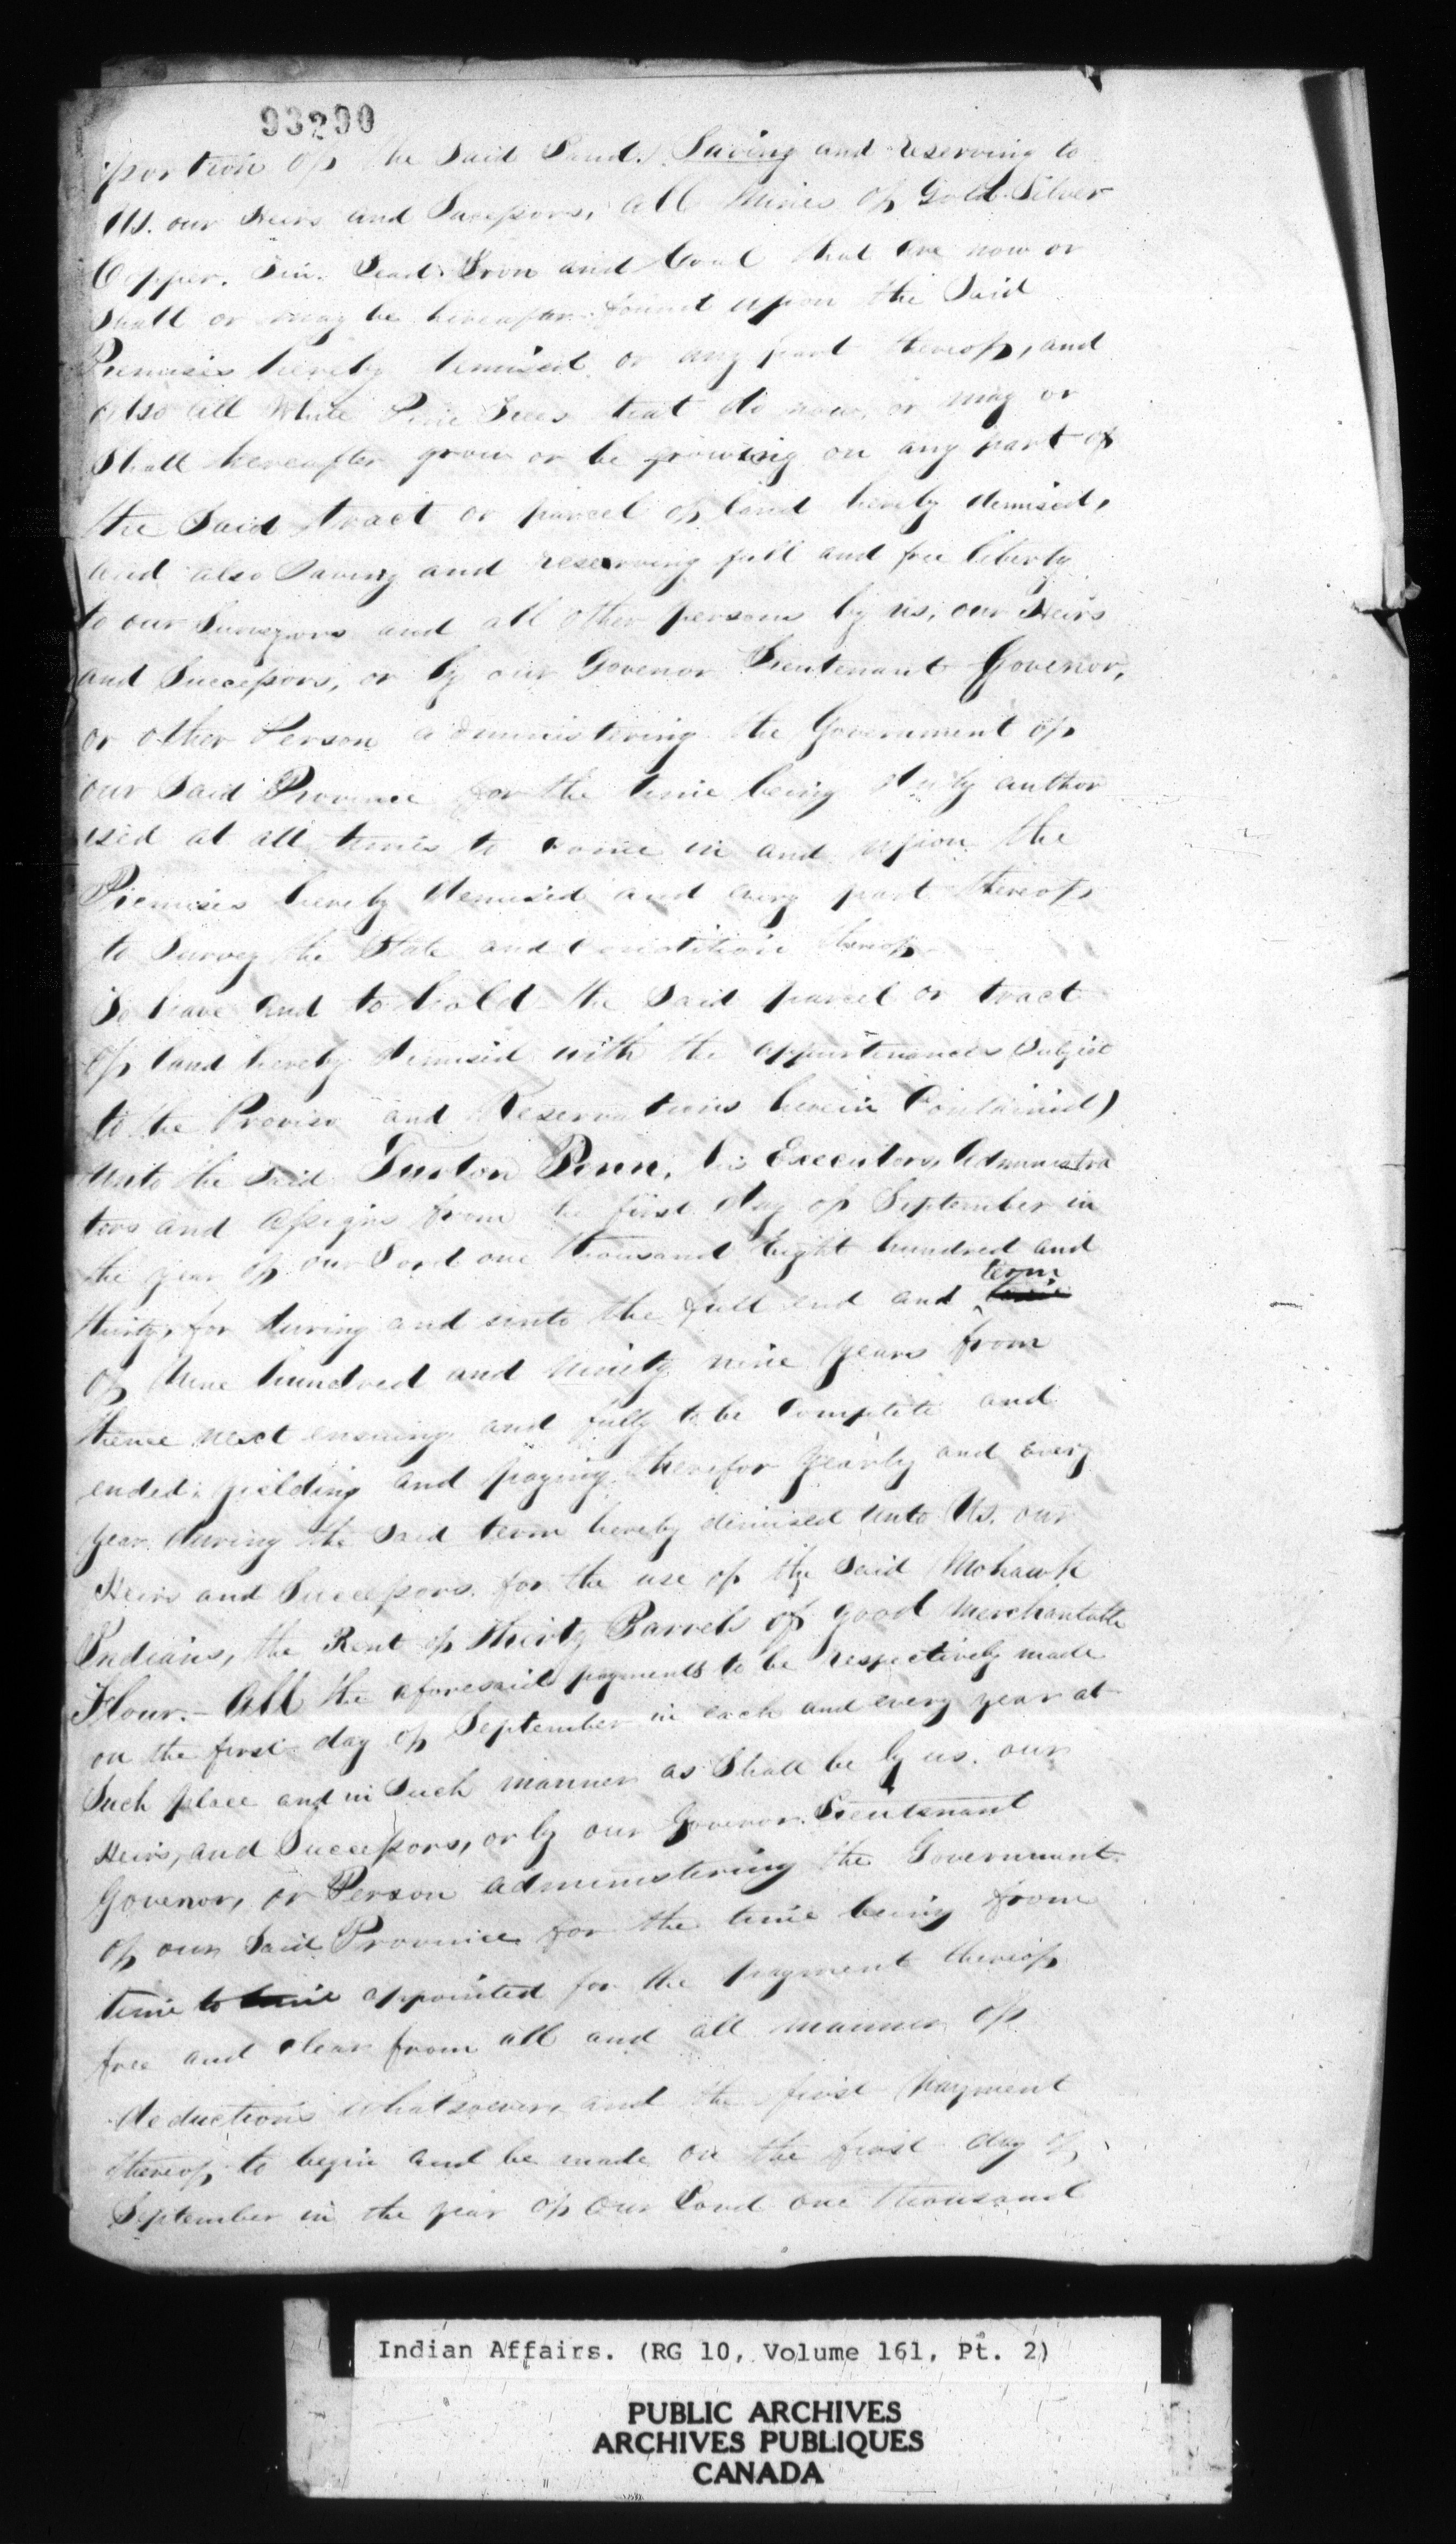 93290
portion of the Said Land. Saving and reserving to
Us. our Heirs and Successors, all Mines of Gold Silver
Copper. Tin. Lead. Iron and Coal that are now or
Shall or may be hereafter found upon the Said
Premises hereby demised or any part thereof, and
also all White Pine Trees that do now, or may or
Shall hereafter grow or be growing on any part of
the Said tract or parcel of land hereby demised,
and also Saving and reserving full and free liberty
to our Surveyors and all other persons by us, our Heirs
and Successors, or by our Govenor Lieutenant Govenor,
or other Person administering the Government of
our Said Province for the time being duly author
ised at all times to come in and upon the
Premises hereby demised and every part thereof,
to Survey the State and Condition thereof
To have and to hold the Said parcel or tract
of land hereby demised with the appurtenances Subject
to the Proviso and Reservations herein Contained)
unto the Said Turton Penn, his Executors, Administra
tors and Assigns from the first day of September in
the year of our Lord one thousand Eight hundred and
term
thirty, for during and unto the full end and time
of Nine hundred and Ninety nine Years from
thence next ensuing and fully to be Complete and
ended: yielding and paying therefor Yearly and Every
Year during the Said term hereby demised unto Us. our
Heirs and Successors. for the use of the Said Mohawk
Indians, the Rent of Thirty Barrels of good Merchantable
Flour. - All the aforesaid payments to be respectively made
on the first day of September in each and every year at
Such place and in Such manner as Shall be by us. our
Heirs, and Successors, or by our Govenor. Lieutenant
Govenor, or Person administering the Government
of our Said Province for the time being from
time to time appointed for the payment thereof
free and clear from all and all manner of
deductions whatsoever, and the first payment
thereof, to begin and be made on the first day of
September in the year of Our Lord one thousand
Indian Affairs. (RG 10, Volume 161, Pt. 2)
PUBLIC ARCHIVES
ARCHIVES PUBLIQUES
CANADA